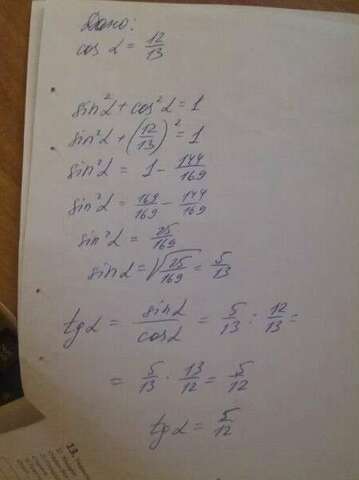 Дано:
cos α = 12/13
sin²α + cos²α = 1
sin²α + (12/13)² = 1
sin²α = 1 - 144/169
sin²α = 169/169 - 144/169
sin²α = 25/169
sin α = √(25/169) = 5/13
tg α = sin α/cos α = 5/13 : 12/13 =
= 5/13 · 13/12 = 5/12
tg α = 5/12
13.